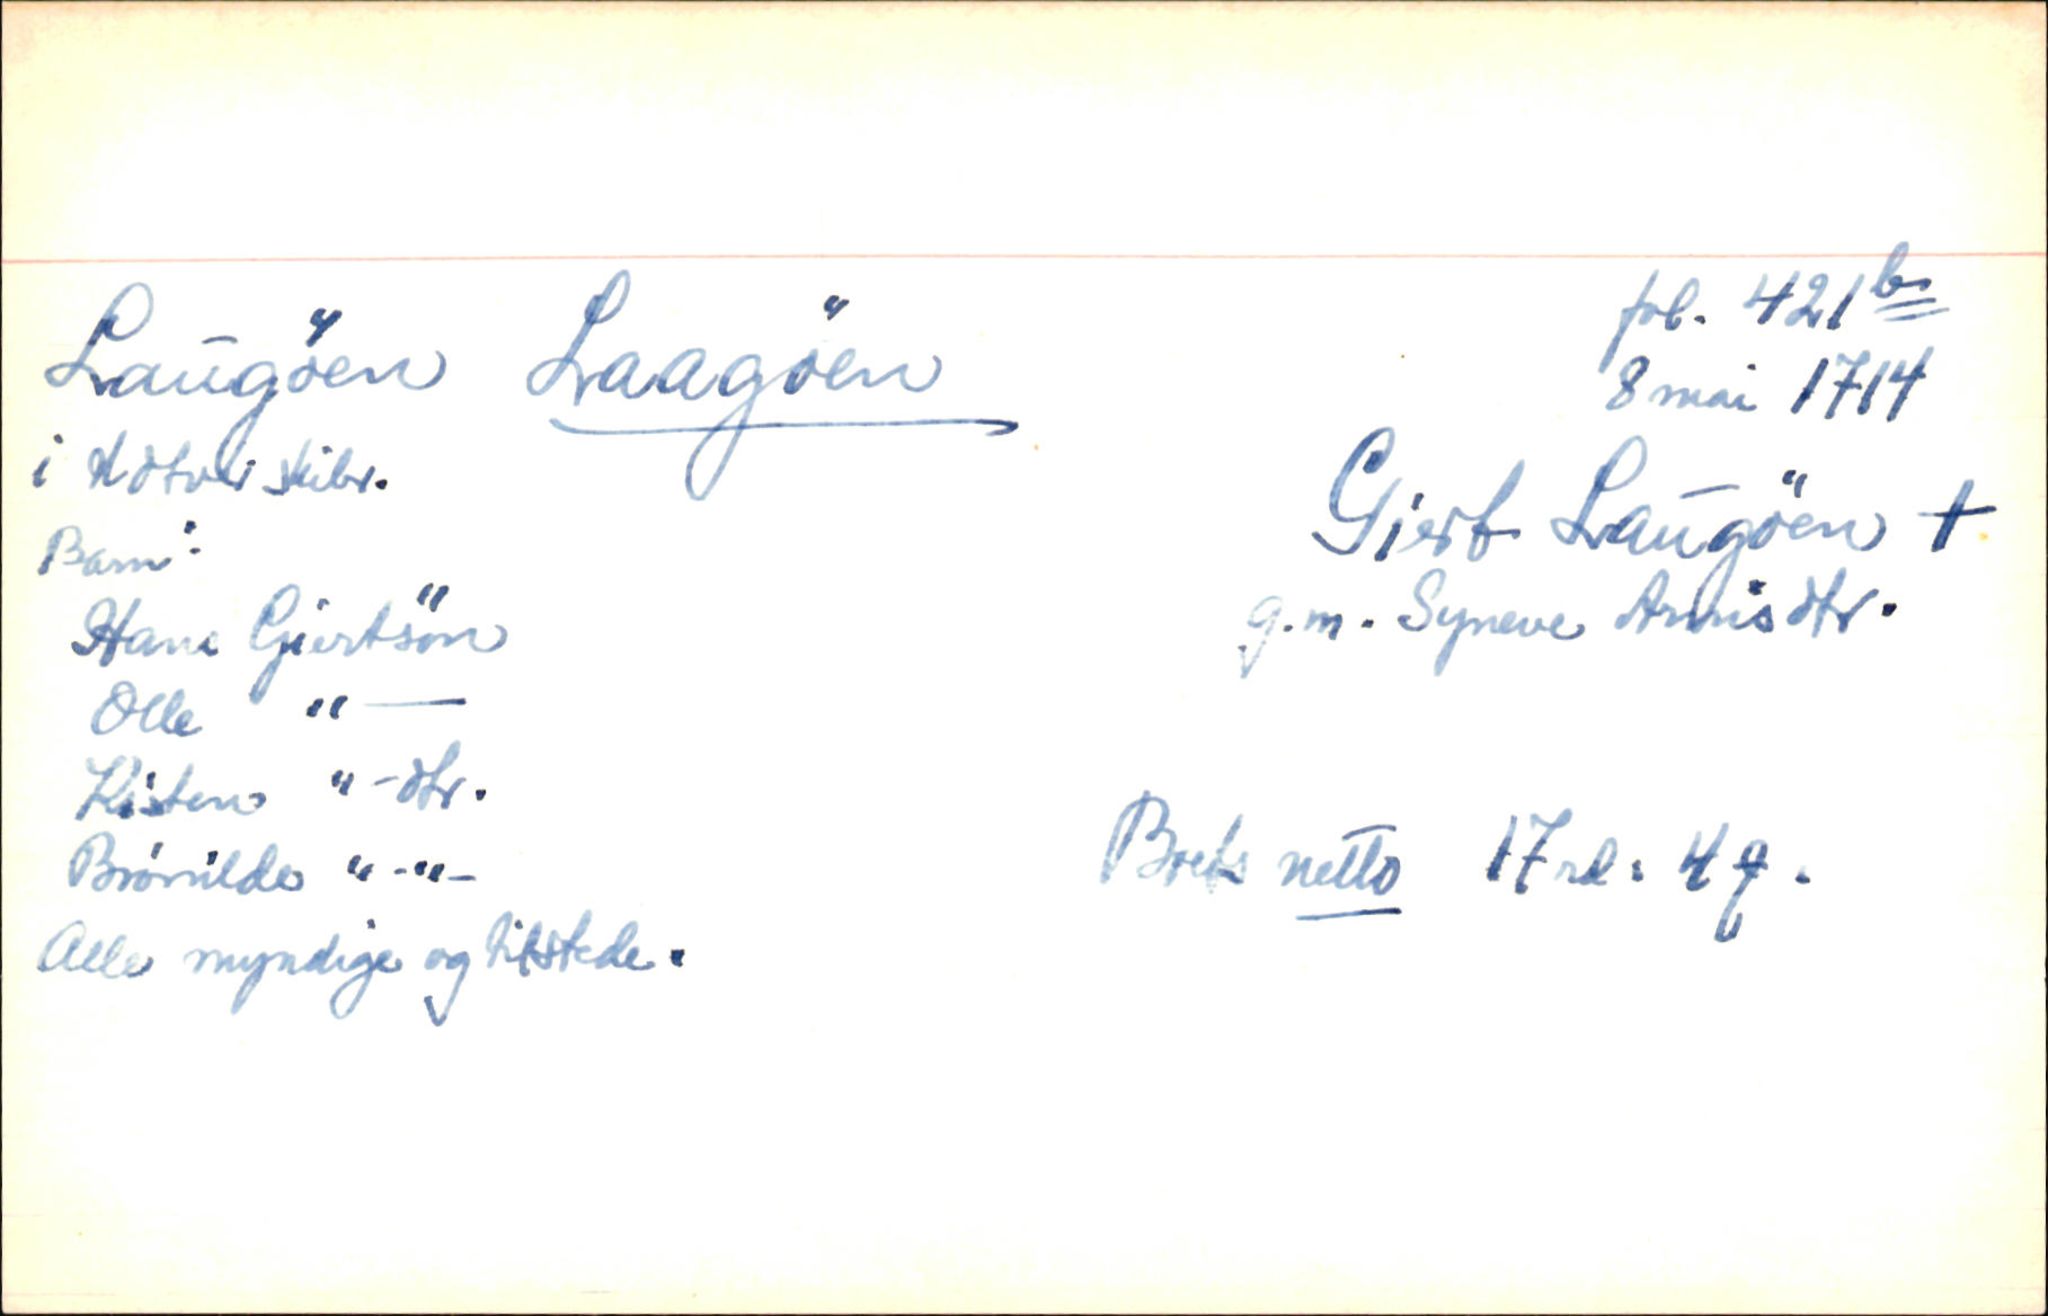 Laugöen Laagöen
fol. 421 b
8 mai 1714
i skibr.
Giert Laugöen †
g.m. Syneve dtr.
Barn:
Hans Giertsön
Olle " —
Kisten " - dtr.
Brönilde " - " -
Alle myndige og tilstede.
Boets netto 17 rd: 4